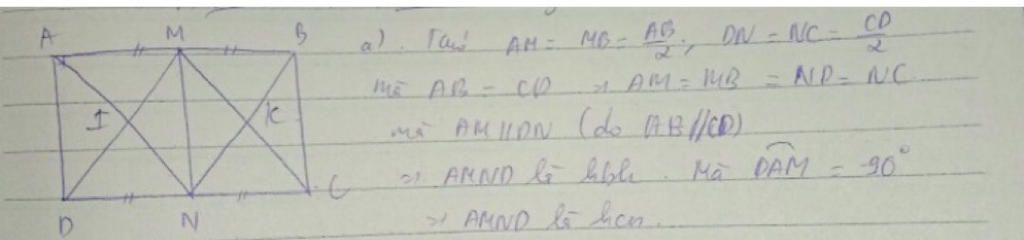 A M B
I K
D N C
a). Ta có AM = MB = AB/2; DN = NC = CD/2
mà AB = CD => AM = MB = ND = NC
mà AM // DN (do AB // CD)
=> AMND là hbh. Mà DAM = 90°
=> AMND là hcn.